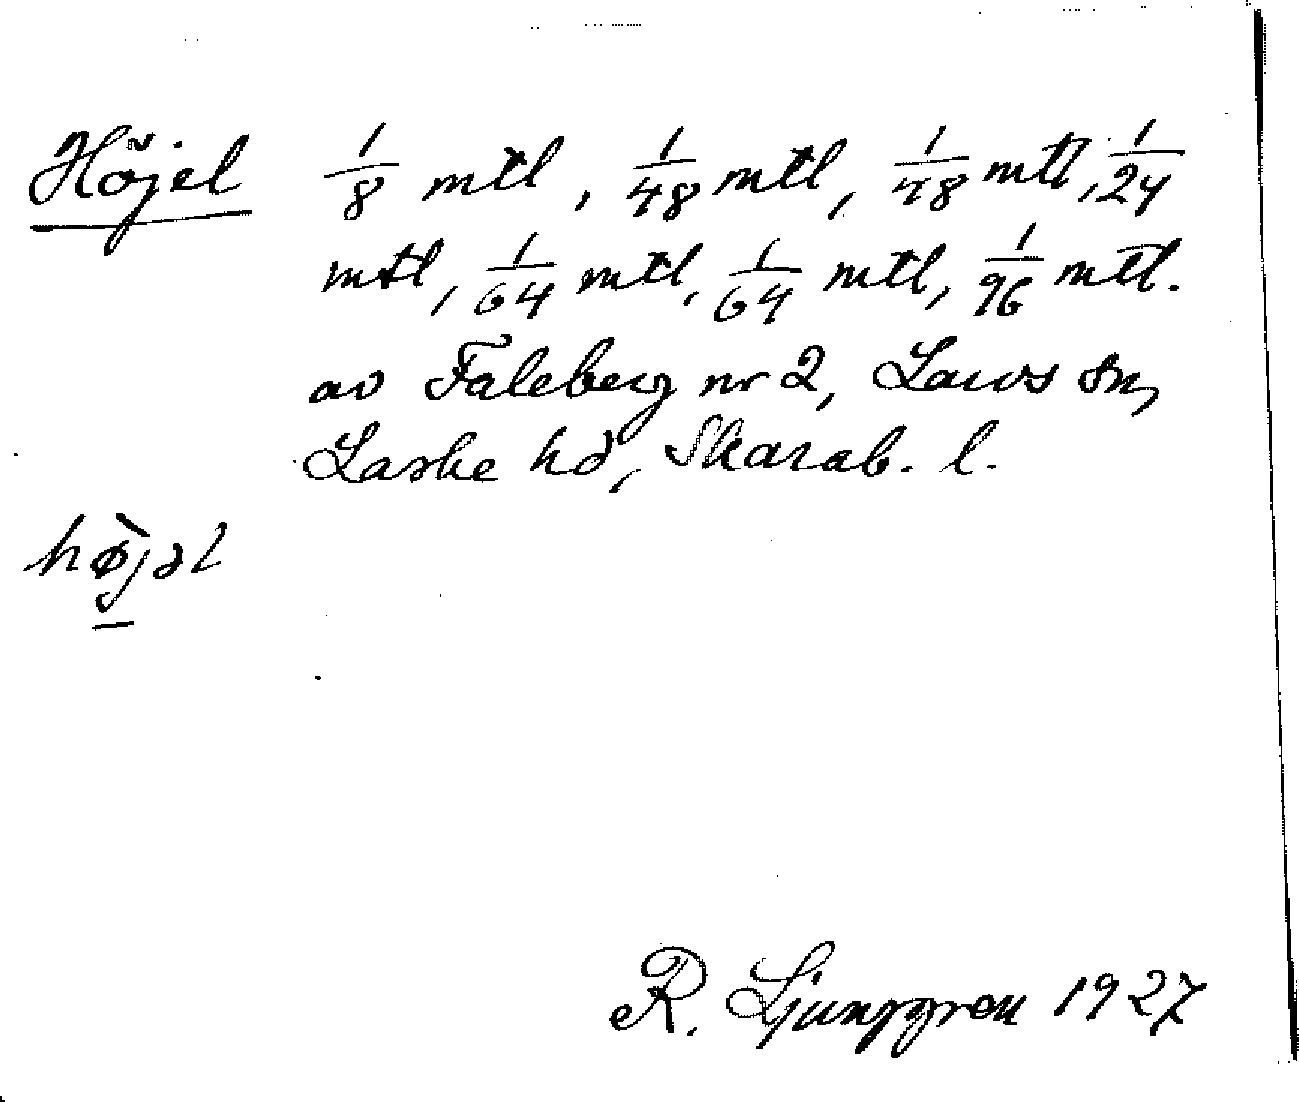 Höjel 1/8 mtl, 1/48 mtl, 1/48 mtl, 1/24
mtl, 1/64 mtl, 1/64 mtl, 1/96 mtl.
av Faleberg nr 2, Larvs sn,
Laske hd, Skarab. l.
hø̀jəl
R. Ljunggren 1927